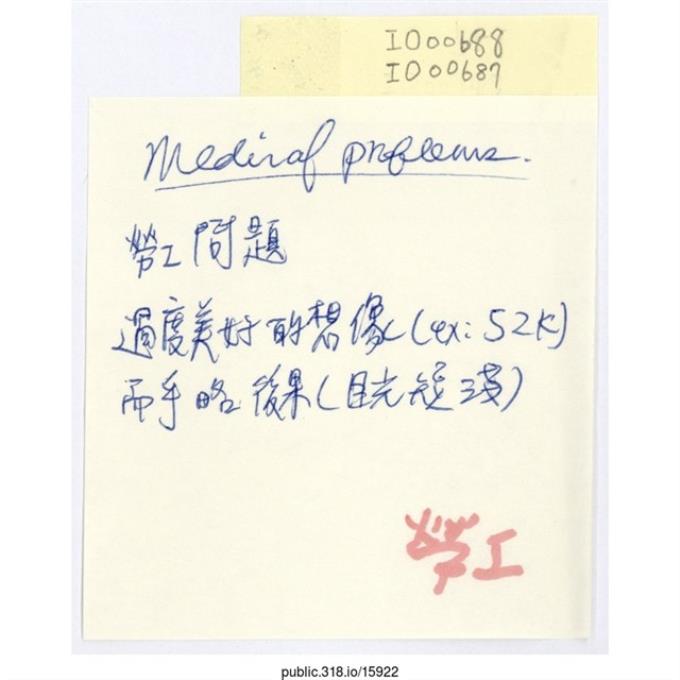 IO00688
IO00687
Medical problems.
勞工問題
過度美好的想像(ex: 52K)
而乎略後果(目光短淺)
勞工
public.318.io/15922